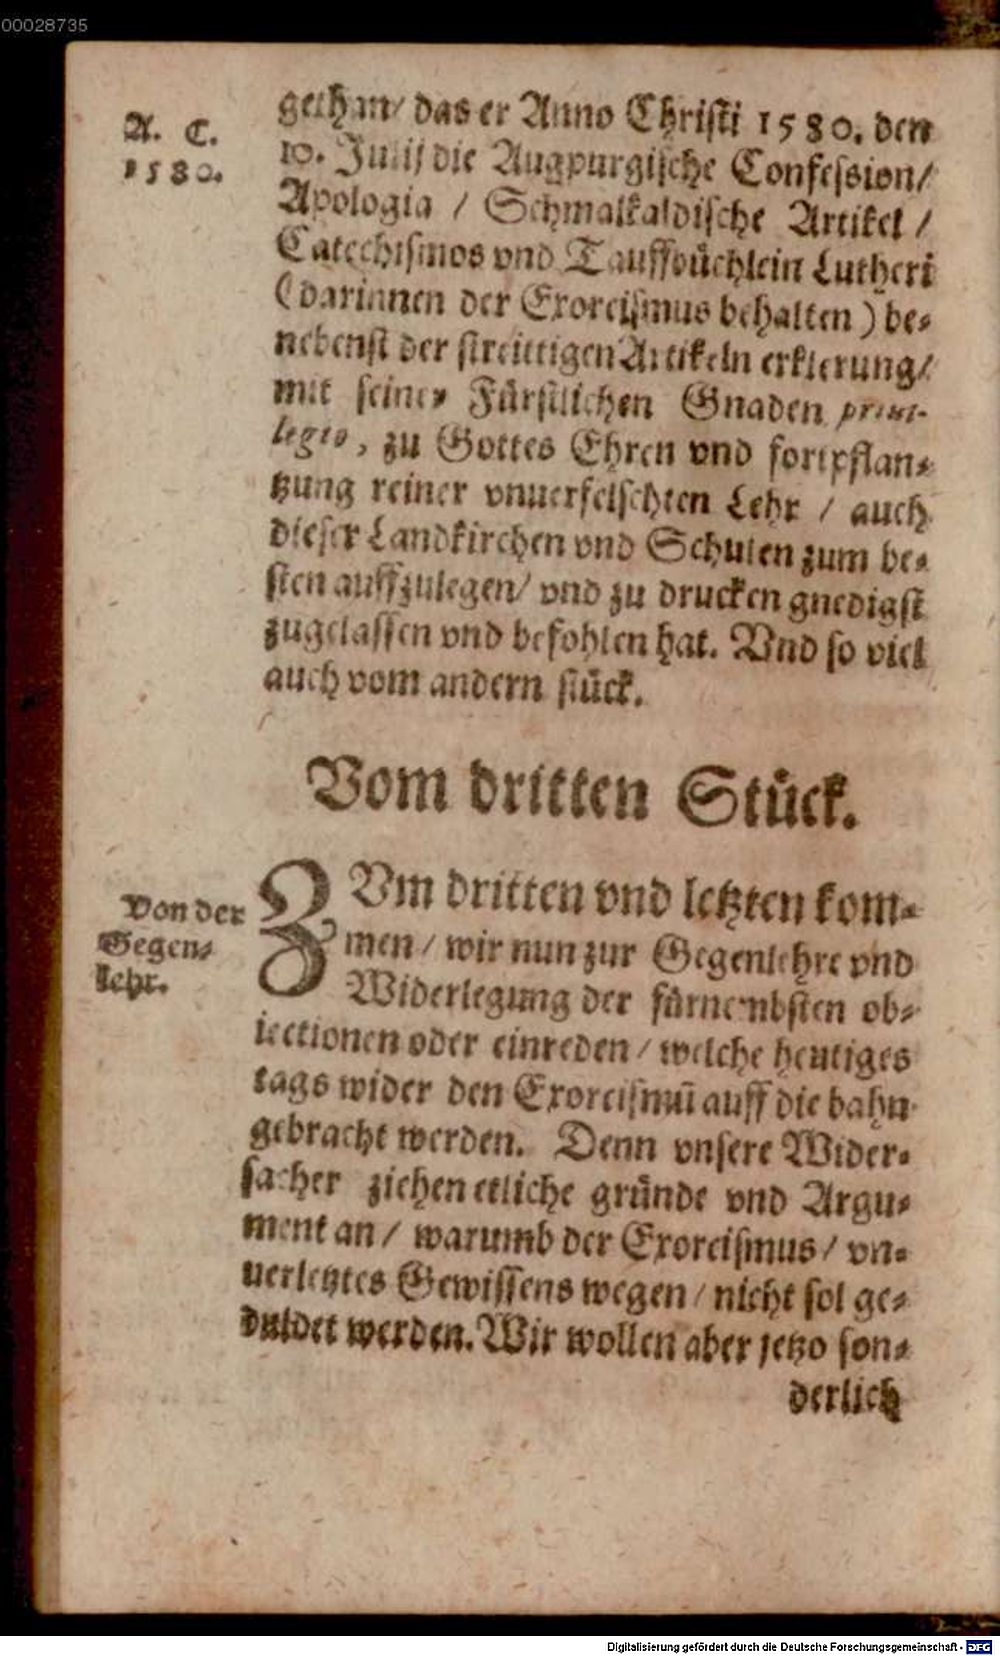 00028735
A. C.
1580.
gethan/ das er Anno Christi 1580. den
10. Julij die Augpurgische Confession/
Apologia / Schmalkaldische Artikel /
Catechismos vnd Tauffbüchlein Lutheri
(darinnen der Exorcismus behalten) be-
nebenst der streittigen Artikeln erklerung/
mit seiner Fürstlichen Gnaden priui-
legio, zu Gottes Ehren vnd fortpflan-
tzung reiner vnuerfelschten Lehr / auch
dieser Landkirchen vnd Schulen zum be-
sten auffzulegen/ vnd zu drucken gnedigst
zugelassen vnd befohlen hat. Vnd so viel
auch vom andern stück.
Vom dritten Stück.
Von der
Gegen-
lehr.
ZVm dritten vnd letzten kom-
men / wir nun zur Gegenlehre vnd
Widerlegung der fürnembsten ob-
iectionen oder einreden / welche heutiges
tags wider den Exorcismū auff die bahn
gebracht werden. Denn vnsere Wider-
sacher ziehen etliche gründe vnd Argu-
ment an / warumb der Exorcismus / vn-
uerletztes Gewissens wegen / nicht sol ge-
duldet werden. Wir wollen aber jetzo son-
derlich
Digitalisierung gefördert durch die Deutsche Forschungsgemeinschaft - DFG